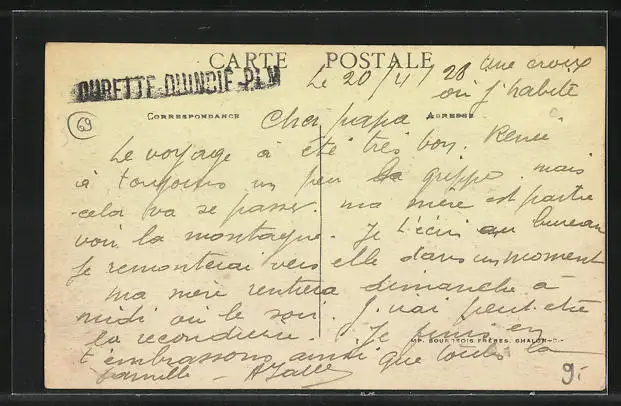 CARTE POSTALE
DURETTE-QUINCIÉ PLM
Le 20/4/28 une croix
où j'habite
69
CORRESPONDANCE
ADRESSE
Cher papa
Le voyage a été très bon. Renée
a toujours un peu la grippe mais
cela va se passer. ma mère est partie
voir la montagne. Je t'écris au bureau
Je remonterai vers elle dans un moment
ma mère rentrera dimanche à
midi ou le soir. J'irai peut-être
la reconduire. Je finis en
IMP. BOURGEOIS FRÈRES, CHALON-S-S
t'embrassons ainsi que toute la
famille -
9.-